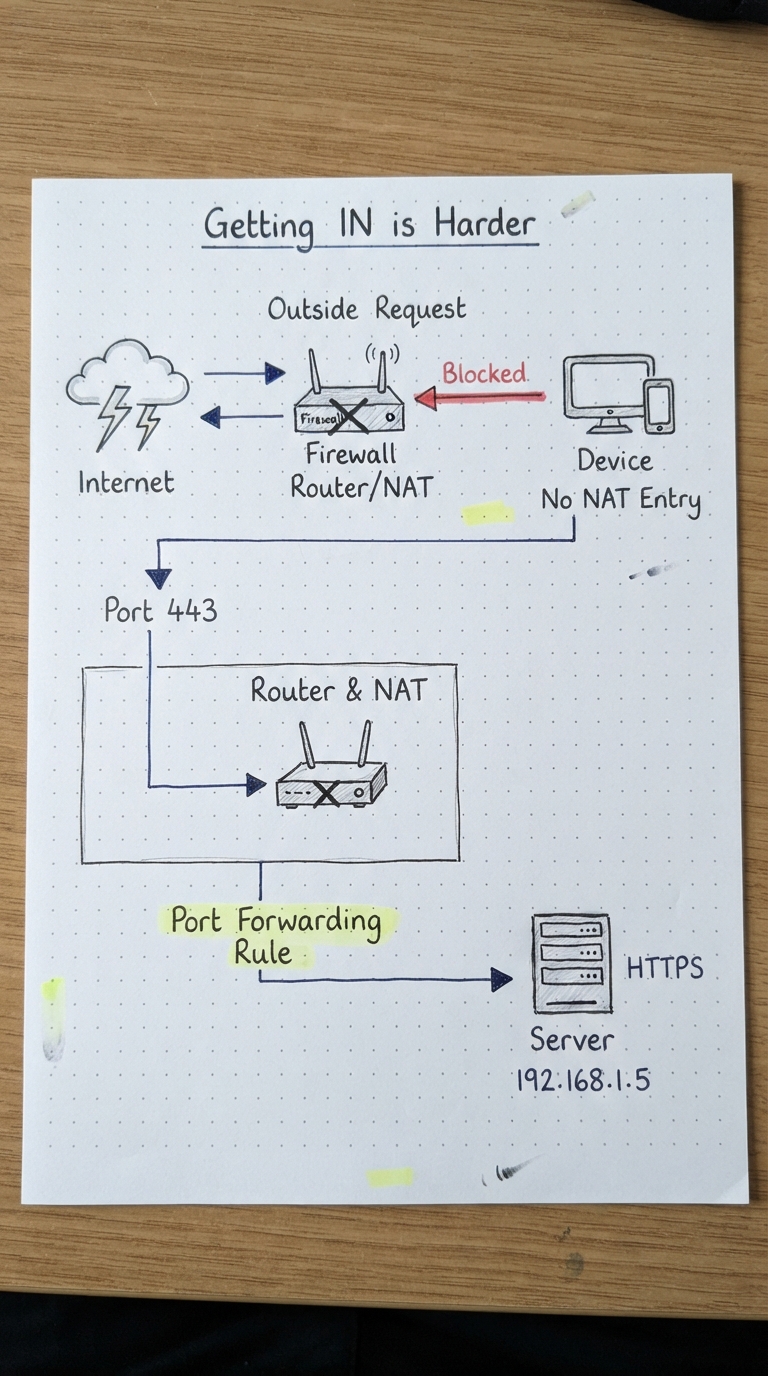 Getting IN is Harder
Outside Request
Blocked
Firewall
Internet
Firewall
Router/NAT
Device
No NAT Entry
Port 443
Router & NAT
Port Forwarding
Rule
HTTPS
Server
192.168.1.5